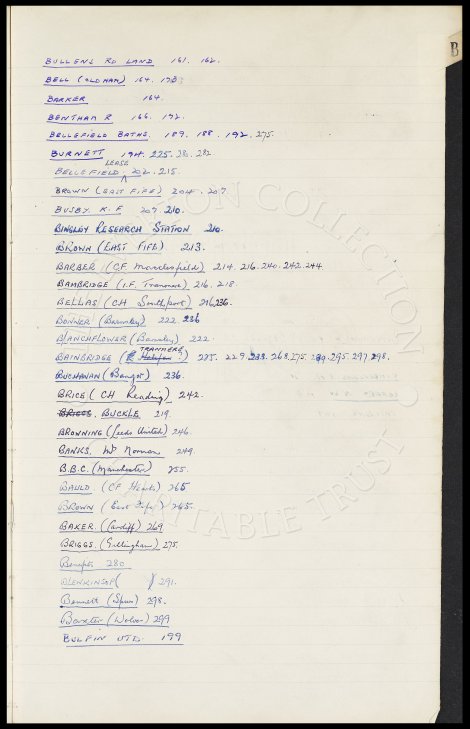 B
BULLENS RD LAND 161. 162.
BELL (OLDHAM) 164. 173
BARKER 164.
BENTHAM R 166. 172.
BELLEFIELD BATHS. 189. 188. 192. 275.
BURNETT 194. 275. 281. 282
BELLEFIELD LEASE 202. 215.
BROWN (EAST FIFE) 204. 207.
BUSBY. K. F 207. 210.
BINGLEY RESEARCH STATION 210.
BROWN (EAST FIFE) 213.
BARBER (CF Macclesfield) 214. 216. 240. 242. 244.
BAMBRIDGE (I.F. Tranmere) 216. 218.
BELLAS (CH Southport) 216. 236.
BONNER (Barnsley) 222. 236
BLANCHFLOWER (Barnsley) 222.
BAINBRIDGE (TRANMERE) 225. 229. 233. 268. 275. 289. 295. 297. 298.
BUCHANAN (Bangor) 236.
BRICE (CH Reading) 242.
BRIGGS BUCKLE 219.
BROWNING (Leeds United) 246.
BANKS. Mr Norman 249.
B.B.C. (Manchester) 255.
BAULD (CF Hearts) 265
BROWN (East Fife) 265.
BAKER. (Cardiff) 269
BRIGGS. (Gillingham) 275.
Benefits 280
BLENKINSOP ( ) 291.
Bennett (Spurs) 298.
Baxter (Wolves) 299
BELFIN LTD. 199
EVERTON COLLECTION
CHARITABLE TRUST